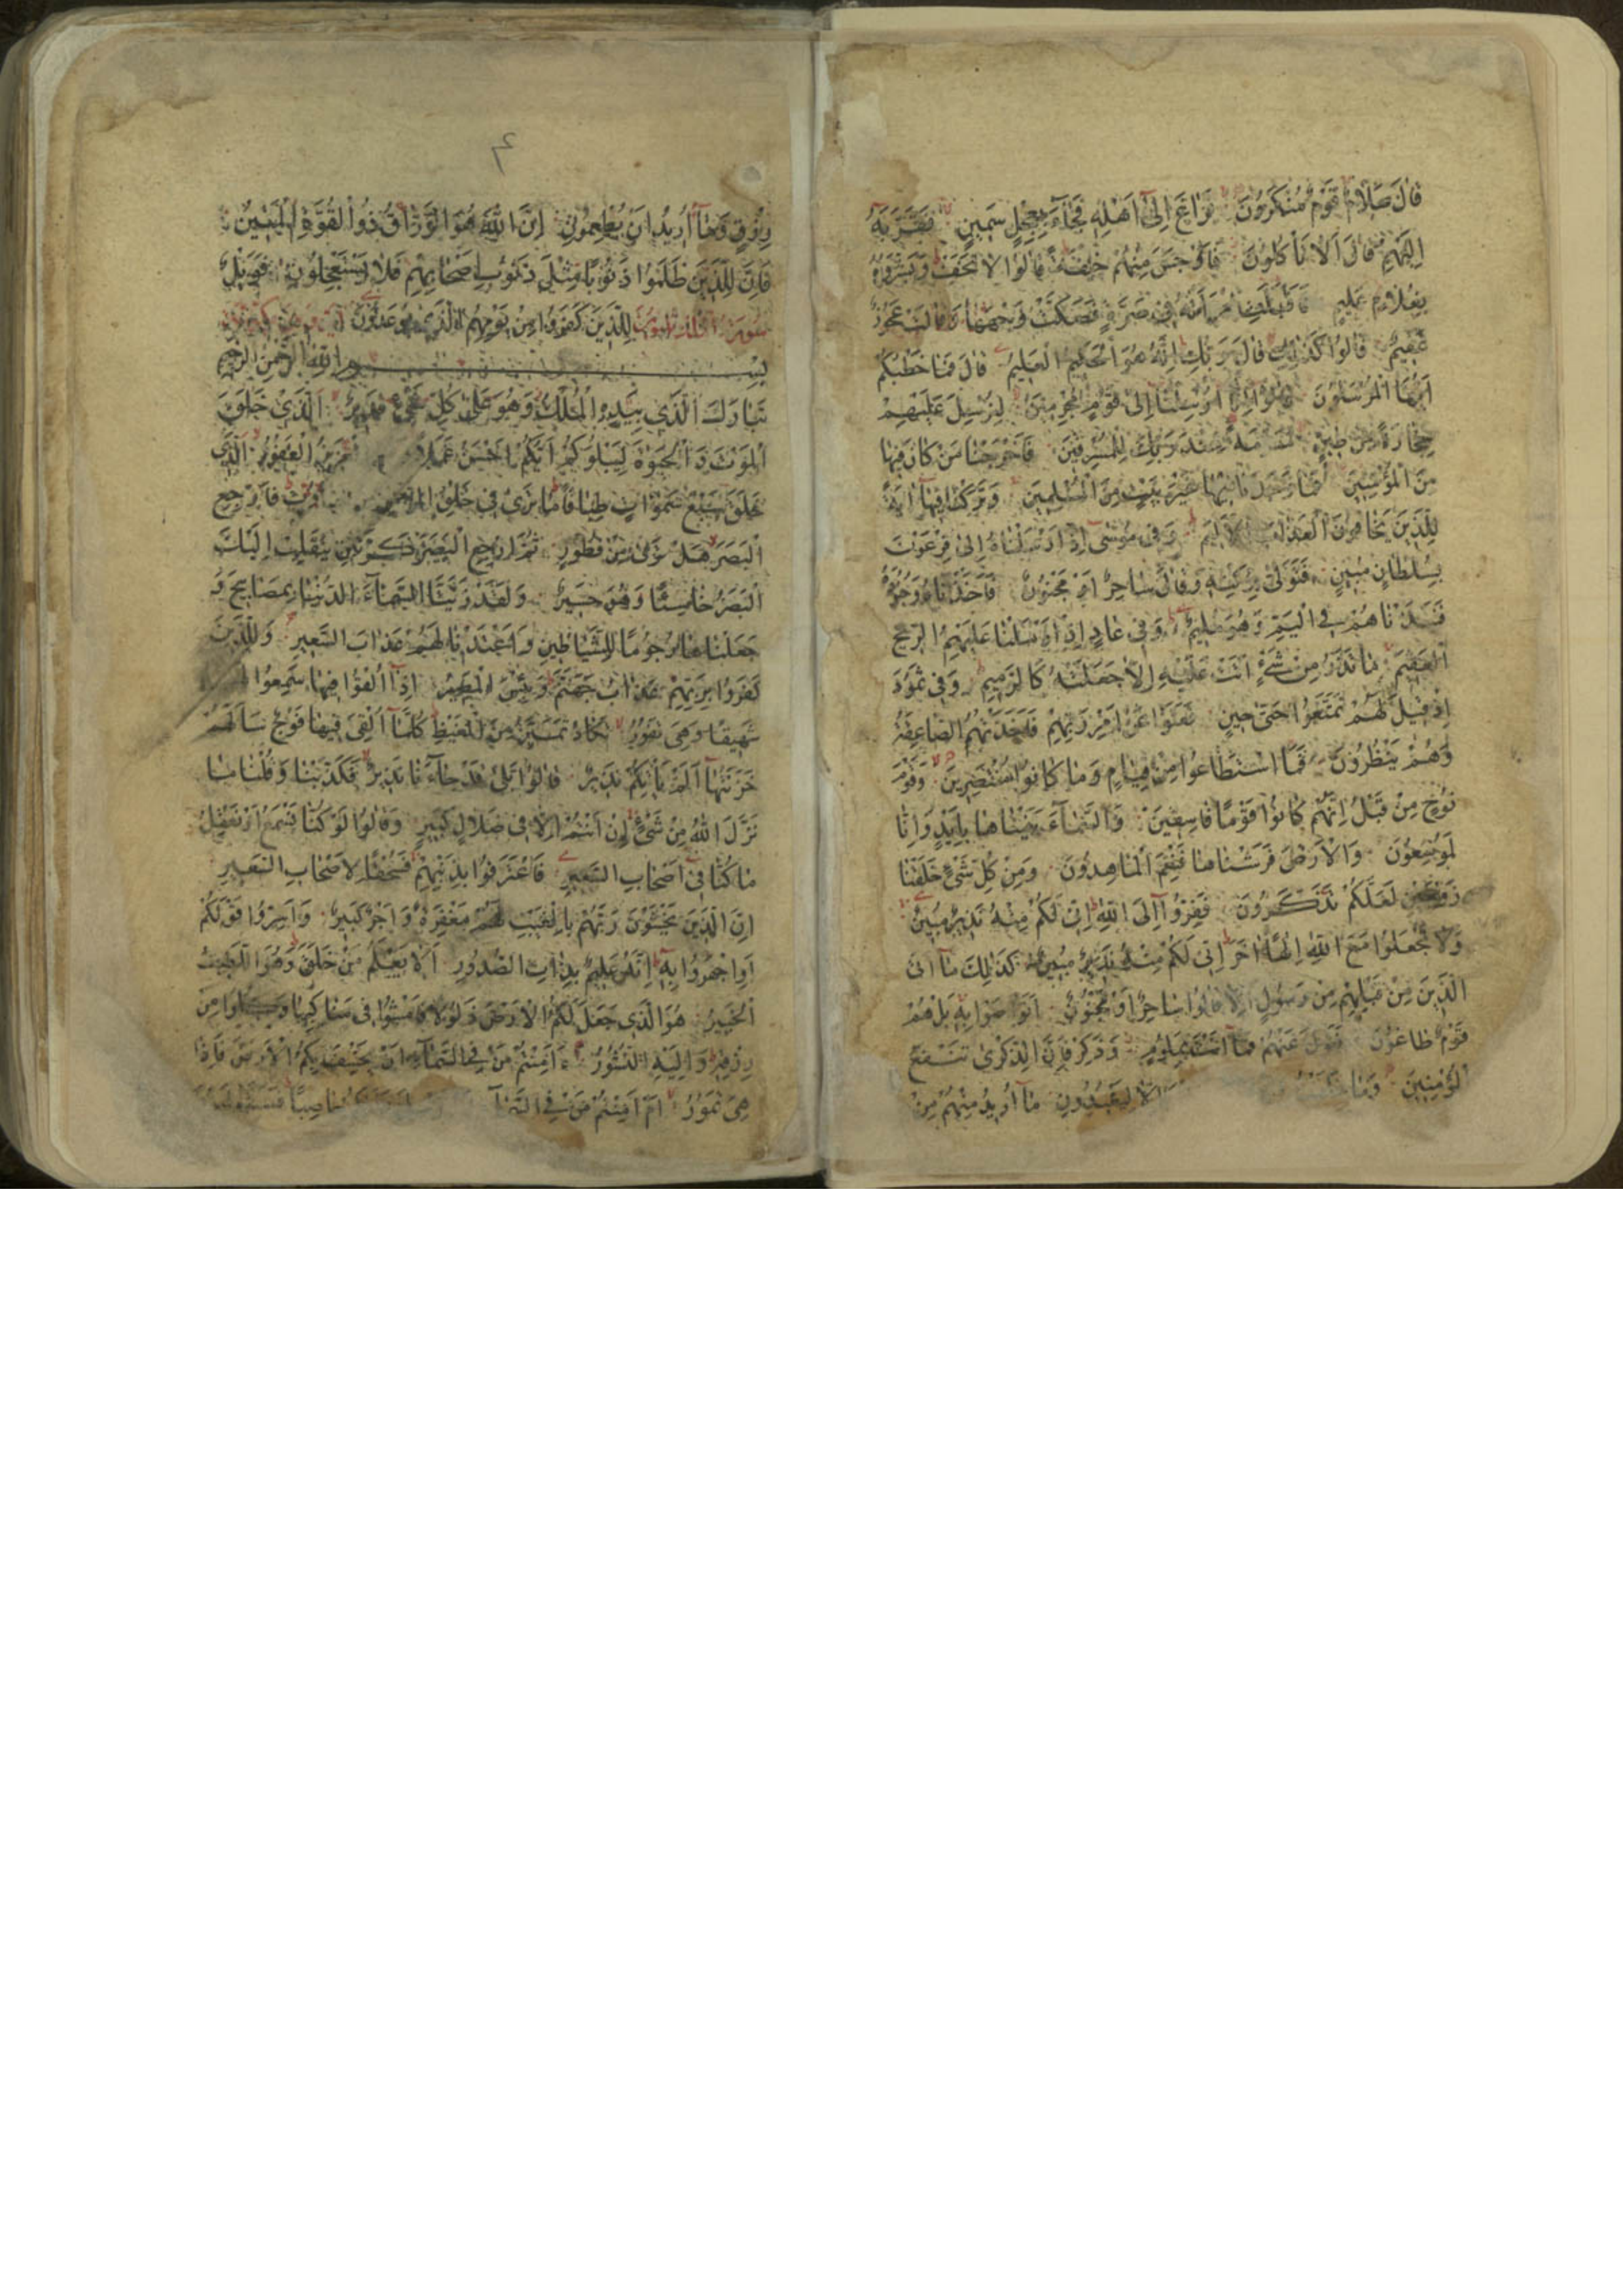 قَالَ سَلَامٌ قَوْمٌ مُنْكَرُونَ فَرَاغَ اِلٰى اَهْلِهِ فَجَآءَ بِعِجْلٍ سَمِينٍ فَقَرَّبَهُ
اِلَيْهِمْ قَالَ اَلَا تَاْكُلُونَ فَاَوْجَسَ مِنْهُمْ خِيفَةً قَالُوا لَا تَخَفْ وَبَشَّرُوهُ
بِغُلَامٍ عَلِيمٍ فَاَقْبَلَتِ امْرَاَتُهُ فِى صَرَّةٍ فَصَكَّتْ وَجْهَهَا وَقَالَتْ عَجُوزٌ
عَقِيمٌ قَالُوا كَذٰلِكِ قَالَ رَبُّكِ اِنَّهُ هُوَ الْحَكِيمُ الْعَلِيمُ قَالَ فَمَا خَطْبُكُمْ
اَيُّهَا الْمُرْسَلُونَ قَالُوا اِنَّا اُرْسِلْنَا اِلٰى قَوْمٍ مُجْرِمِينَ لِنُرْسِلَ عَلَيْهِمْ
حِجَارَةً مِنْ طِينٍ مُسَوَّمَةً عِنْدَ رَبِّكَ لِلْمُسْرِفِينَ فَاَخْرَجْنَا مَنْ كَانَ فِيهَا
مِنَ الْمُؤْمِنِينَ فَمَا وَجَدْنَا فِيهَا غَيْرَ بَيْتٍ مِنَ الْمُسْلِمِينَ وَتَرَكْنَا فِيهَا اٰيَةً
لِلَّذِينَ يَخَافُونَ الْعَذَابَ الْاَلِيمَ وَفِى مُوسٰى اِذْ اَرْسَلْنَاهُ اِلٰى فِرْعَوْنَ
بِسُلْطَانٍ مُبِينٍ فَتَوَلّٰى بِرُكْنِهِ وَقَالَ سَاحِرٌ اَوْ مَجْنُونٌ فَاَخَذْنَاهُ وَجُنُودَهُ
فَنَبَذْنَاهُمْ فِى الْيَمِّ وَهُوَ مُلِيمٌ وَفِى عَادٍ اِذْ اَرْسَلْنَا عَلَيْهِمُ الرِّيحَ
الْعَقِيمَ مَا تَذَرُ مِنْ شَىْءٍ اَتَتْ عَلَيْهِ اِلَّا جَعَلَتْهُ كَالرَّمِيمِ وَفِى ثَمُودَ
اِذْ قِيلَ لَهُمْ تَمَتَّعُوا حَتّٰى حِينٍ فَعَتَوْا عَنْ اَمْرِ رَبِّهِمْ فَاَخَذَتْهُمُ الصَّاعِقَةُ
وَهُمْ يَنْظُرُونَ فَمَا اسْتَطَاعُوا مِنْ قِيَامٍ وَمَا كَانُوا مُنْتَصِرِينَ وَقَوْمَ
نُوحٍ مِنْ قَبْلُ اِنَّهُمْ كَانُوا قَوْمًا فَاسِقِينَ وَالسَّمَآءَ بَنَيْنَاهَا بِاَيْدٍ وَاِنَّا
لَمُوسِعُونَ وَالْاَرْضَ فَرَشْنَاهَا فَنِعْمَ الْمَاهِدُونَ وَمِنْ كُلِّ شَىْءٍ خَلَقْنَا
زَوْجَيْنِ لَعَلَّكُمْ تَذَكَّرُونَ فَفِرُّوا اِلَى اللّٰهِ اِنِّى لَكُمْ مِنْهُ نَذِيرٌ مُبِينٌ
وَلَا تَجْعَلُوا مَعَ اللّٰهِ اِلٰهًا اٰخَرَ اِنِّى لَكُمْ مِنْهُ نَذِيرٌ مُبِينٌ كَذٰلِكَ مَآ اَتَى
الَّذِينَ مِنْ قَبْلِهِمْ مِنْ رَسُولٍ اِلَّا قَالُوا سَاحِرٌ اَوْ مَجْنُونٌ اَتَوَاصَوْا بِهِ بَلْ هُمْ
قَوْمٌ طَاغُونَ فَتَوَلَّ عَنْهُمْ فَمَآ اَنْتَ بِمَلُومٍ وَذَكِّرْ فَاِنَّ الذِّكْرٰى تَنْفَعُ
الْمُؤْمِنِينَ وَمَا اِلَّا لِيَعْبُدُونِ مَآ اُرِيدُ مِنْهُمْ مِنْ
رِزْقٍ وَمَآ اُرِيدُ اَنْ يُطْعِمُونِ اِنَّ اللّٰهَ هُوَ الرَّزَّاقُ ذُو الْقُوَّةِ الْمَتِينُ
فَاِنَّ لِلَّذِينَ ظَلَمُوا ذَنُوبًا مِثْلَ ذَنُوبِ اَصْحَابِهِمْ فَلَا يَسْتَعْجِلُونِ فَوَيْلٌ
سُورَةُ لِلَّذِينَ كَفَرُوا مِنْ يَوْمِهِمُ الَّذِى يُوعَدُونَ
بِسْمِ اللّٰهِ الرَّحْمٰنِ الرَّحِيمِ
تَبَارَكَ الَّذِى بِيَدِهِ الْمُلْكُ وَهُوَ عَلٰى كُلِّ شَىْءٍ قَدِيرٌ الَّذِى خَلَقَ
الْمَوْتَ وَالْحَيٰوةَ لِيَبْلُوَكُمْ اَيُّكُمْ اَحْسَنُ عَمَلًا الْعَزِيزُ الْغَفُورُ الَّذِى
خَلَقَ سَبْعَ سَمٰوَاتٍ طِبَاقًا مَا تَرٰى فِى خَلْقِ الرَّحْمٰنِ تَفَاوُتٍ فَارْجِعِ
الْبَصَرَ هَلْ تَرٰى مِنْ فُطُورٍ ثُمَّ ارْجِعِ الْبَصَرَ كَرَّتَيْنِ يَنْقَلِبْ اِلَيْكَ
الْبَصَرُ خَاسِئًا وَهُوَ حَسِيرٌ وَلَقَدْ زَيَّنَّا السَّمَآءَ الدُّنْيَا بِمَصَابِيحَ وَ
جَعَلْنَاهَا رُجُومًا لِلشَّيَاطِينِ وَاَعْتَدْنَا لَهُمْ عَذَابَ السَّعِيرِ وَلِلَّذِينَ
كَفَرُوا بِرَبِّهِمْ عَذَابُ جَهَنَّمَ وَبِئْسَ الْمَصِيرُ اِذَآ اُلْقُوا فِيهَا سَمِعُوا لَهَا
شَهِيقًا وَهِىَ تَفُورُ تَكَادُ تَمَيَّزُ مِنَ الْغَيْظِ كُلَّمَآ اُلْقِىَ فِيهَا فَوْجٌ سَاَلَهُمْ
خَزَنَتُهَآ اَلَمْ يَاْتِكُمْ نَذِيرٌ قَالُوا بَلٰى قَدْ جَآءَنَا نَذِيرٌ فَكَذَّبْنَا وَقُلْنَا مَا
نَزَّلَ اللّٰهُ مِنْ شَىْءٍ اِنْ اَنْتُمْ اِلَّا فِى ضَلَالٍ كَبِيرٍ وَقَالُوا لَوْ كُنَّا نَسْمَعُ اَوْ نَعْقِلُ
مَا كُنَّا فِى اَصْحَابِ السَّعِيرِ فَاعْتَرَفُوا بِذَنْبِهِمْ فَسُحْقًا لِاَصْحَابِ السَّعِيرِ
اِنَّ الَّذِينَ يَخْشَوْنَ رَبَّهُمْ بِالْغَيْبِ لَهُمْ مَغْفِرَةٌ وَاَجْرٌ كَبِيرٌ وَاَسِرُّوا قَوْلَكُمْ
اَوِ اجْهَرُوا بِهِ اِنَّهُ عَلِيمٌ بِذَاتِ الصُّدُورِ اَلَا يَعْلَمُ مَنْ خَلَقَ وَهُوَ اللَّطِيفُ
الْخَبِيرُ هُوَ الَّذِى جَعَلَ لَكُمُ الْاَرْضَ ذَلُولًا فَامْشُوا فِى مَنَاكِبِهَا وَكُلُوا مِنْ
رِزْقِهِ وَاِلَيْهِ النُّشُورُ ءَاَمِنْتُمْ مَنْ فِى السَّمَآءِ اَنْ يَخْسِفَ بِكُمُ الْاَرْضَ فَاِذَا
هِىَ تَمُورُ اَمْ اَمِنْتُمْ مَنْ فِى السَّمَآءِ حَاصِبًا فَسَتَعْلَمُونَ